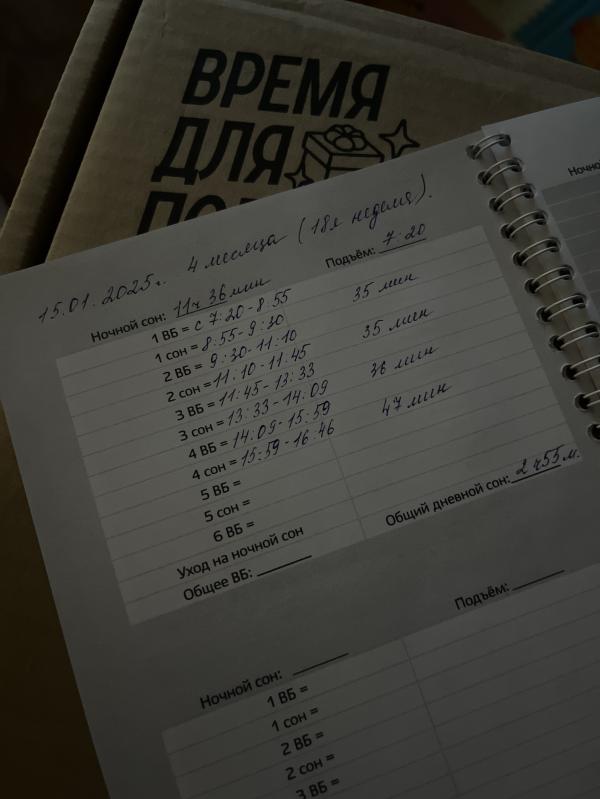 ВРЕМЯ
ДЛЯ
15.01.2025г. 4 месяца (18я неделя).
Ночной сон: 11ч 36мин Подъём: 7:20
1 ВБ = с 7:20-8:55
1 сон = 8:55-9:30 35 мин
2 ВБ = 9:30-11:10
2 сон = 11:10-11:45 35 мин
3 ВБ = 11:45-13:33
3 сон = 13:33-14:09 36 мин
4 ВБ = 14:09-15:59
4 сон = 15:59-16:46 47 мин
5 ВБ =
5 сон =
6 ВБ =
Уход на ночной сон
Общее ВБ: Общий дневной сон: 2ч55м.
Ночной сон: Подъём:
1 ВБ =
1 сон =
2 ВБ =
2 сон =
3 ВБ =